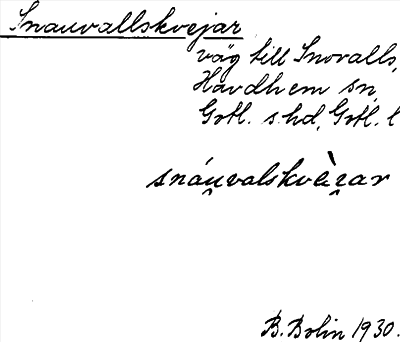 Snauvallskvejar
väg till Snovalls,
Havdhem sn,
Gotl. s. hd, Gotl. l
snáu̯valskvæ̀i̯ar
B. Bolin 1930.